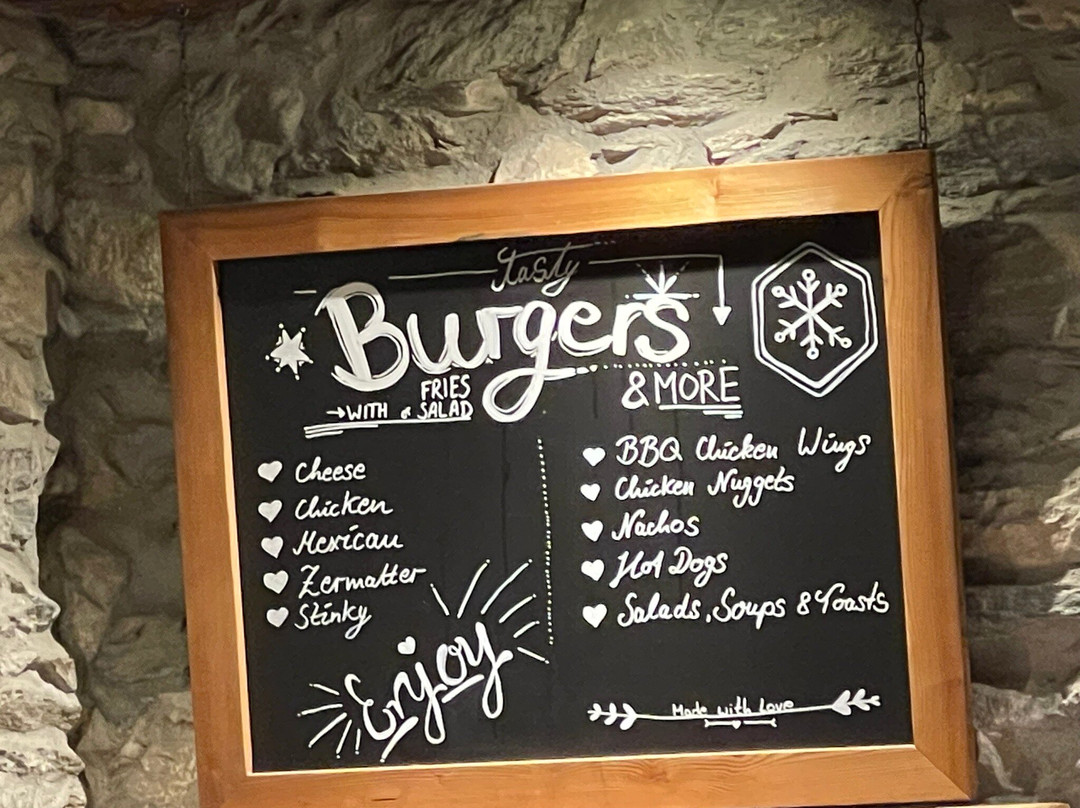 tasty
Burgers
FRIES
→WITH & SALAD
& MORE
Cheese
Chicken
Mexican
Zermatter
Stinky
Enjoy
BBQ Chicken Wings
Chicken Nuggets
Nachos
Hot Dogs
Salads, Soups & Toasts
Made with Love